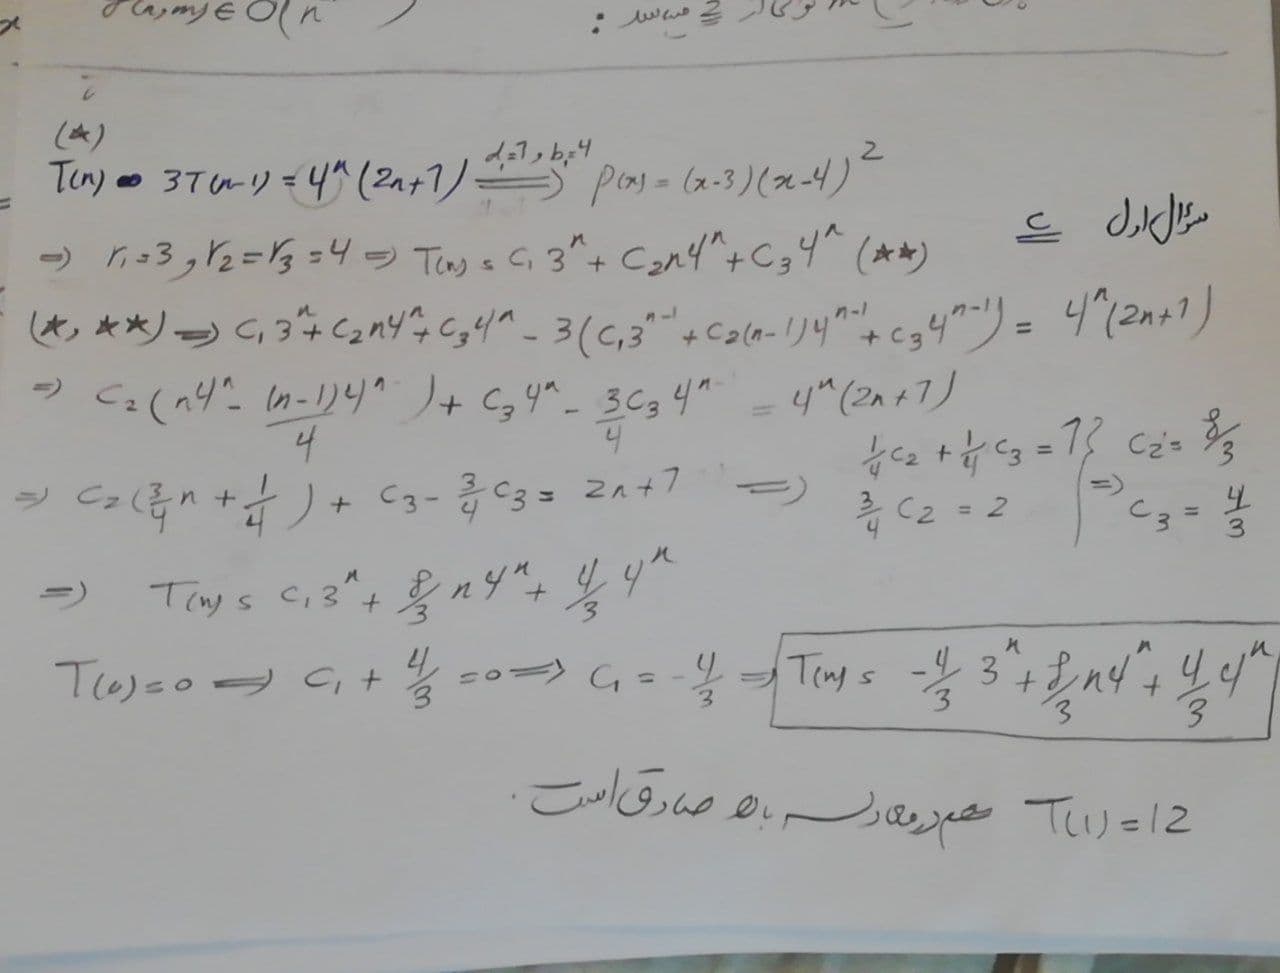 (*)
T(n) - 3T(n-1) = 4^n (2n+7) ⟹ d₁=1, b₁=4 P(x) = (x-3)(x-4)^2
سؤال اول c
⇒ r₁=3, r₂=r₃=4 ⇒ T(n) = C₁3^n + C₂n4^n + C₃4^n (**)
(*, **) ⇒ C₁3^n + C₂n4^n + C₃4^n - 3(C₁3^{n-1} + C₂(n-1)4^{n-1} + C₃4^{n-1}) = 4^n(2n+1)
⇒ C₂(n4^n - (n-1)4^n/4) + C₃4^n - 3C₃/4 4^n = 4^n(2n+7)
⇒ C₂(3/4 n + 1/4) + C₃ - 3/4 C₃ = 2n+7 ⇒ 1/4 C₂ + 1/4 C₃ = 1 } C₂ = 8/3
3/4 C₂ = 2 ⇒ C₃ = 4/3
⇒ T(n) = C₁3^n + 8/3 n4^n + 4/3 4^n
T(0)=0 ⇒ C₁ + 4/3 = 0 ⇒ C₁ = -4/3 ⇒ T(n) = -4/3 3^n + 8/3 n4^n + 4/3 4^n
T(1)=12 هم در معادله بالا صادق است.